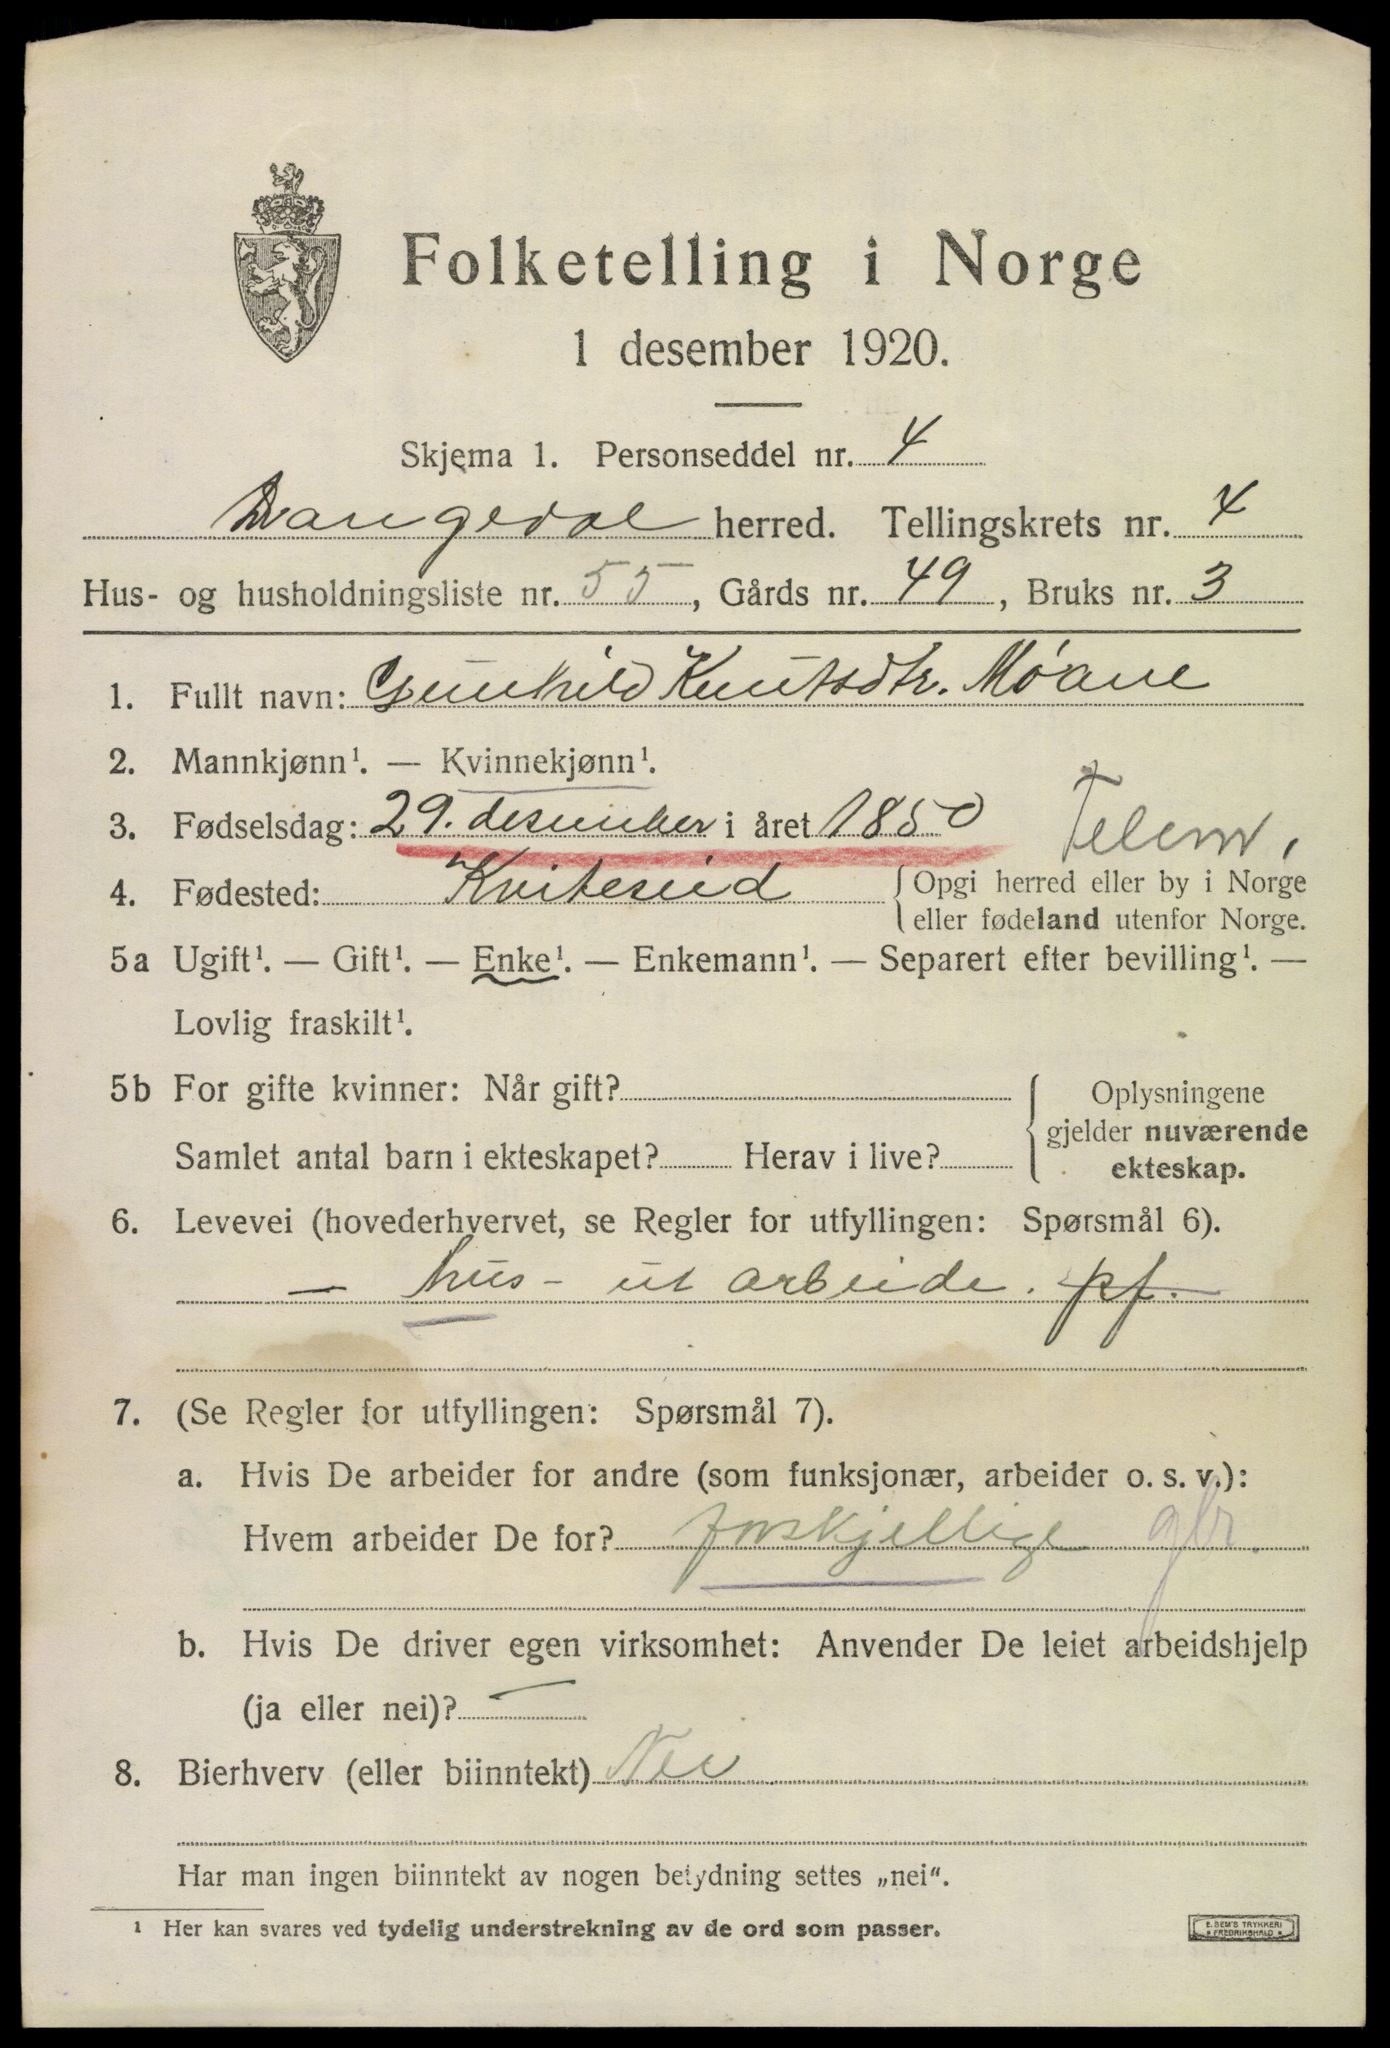 Folketelling i Norge
1 desember 1920.
Skjema 1. Personseddel nr. 4
Drangedal herred. Tellingskrets nr. 4
Hus- og husholdningsliste nr. 55, Gårds nr. 49, Bruks nr. 3
1. Fullt navn: Gunhild Knutsdtr. Moane
2. Mannkjønn¹. — Kvinnekjønn¹.
3. Fødselsdag: 29. desember i året 1850 Telem,
4. Fødested: Kviteseid {Opgi herred eller by i Norge
eller fødeland utenfor Norge.
5a Ugift¹. — Gift¹. — Enke¹. — Enkemann¹. — Separert efter bevilling¹. —
Lovlig fraskilt¹.
5b For gifte kvinner: Når gift? Oplysningene
gjelder nuværende
Samlet antal barn i ekteskapet? Herav i live? ekteskap.
6. Levevei (hovederhvervet, se Regler for utfyllingen: Spørsmål 6).
— hus - ut arbeide. pf.
7. (Se Regler for utfyllingen: Spørsmål 7).
a. Hvis De arbeider for andre (som funksjonær, arbeider o. s. v.):
Hvem arbeider De for? forskjellige gbr.
b. Hvis De driver egen virksomhet: Anvender De leiet arbeidshjelp
(ja eller nei)? —
8. Bierhverv (eller biinntekt) Nei
Har man ingen biinntekt av nogen betydning settes „nei“.
¹ Her kan svares ved tydelig understrekning av de ord som passer.
E. SEM'S TRYKKERI
* FREDRIKSHALD *